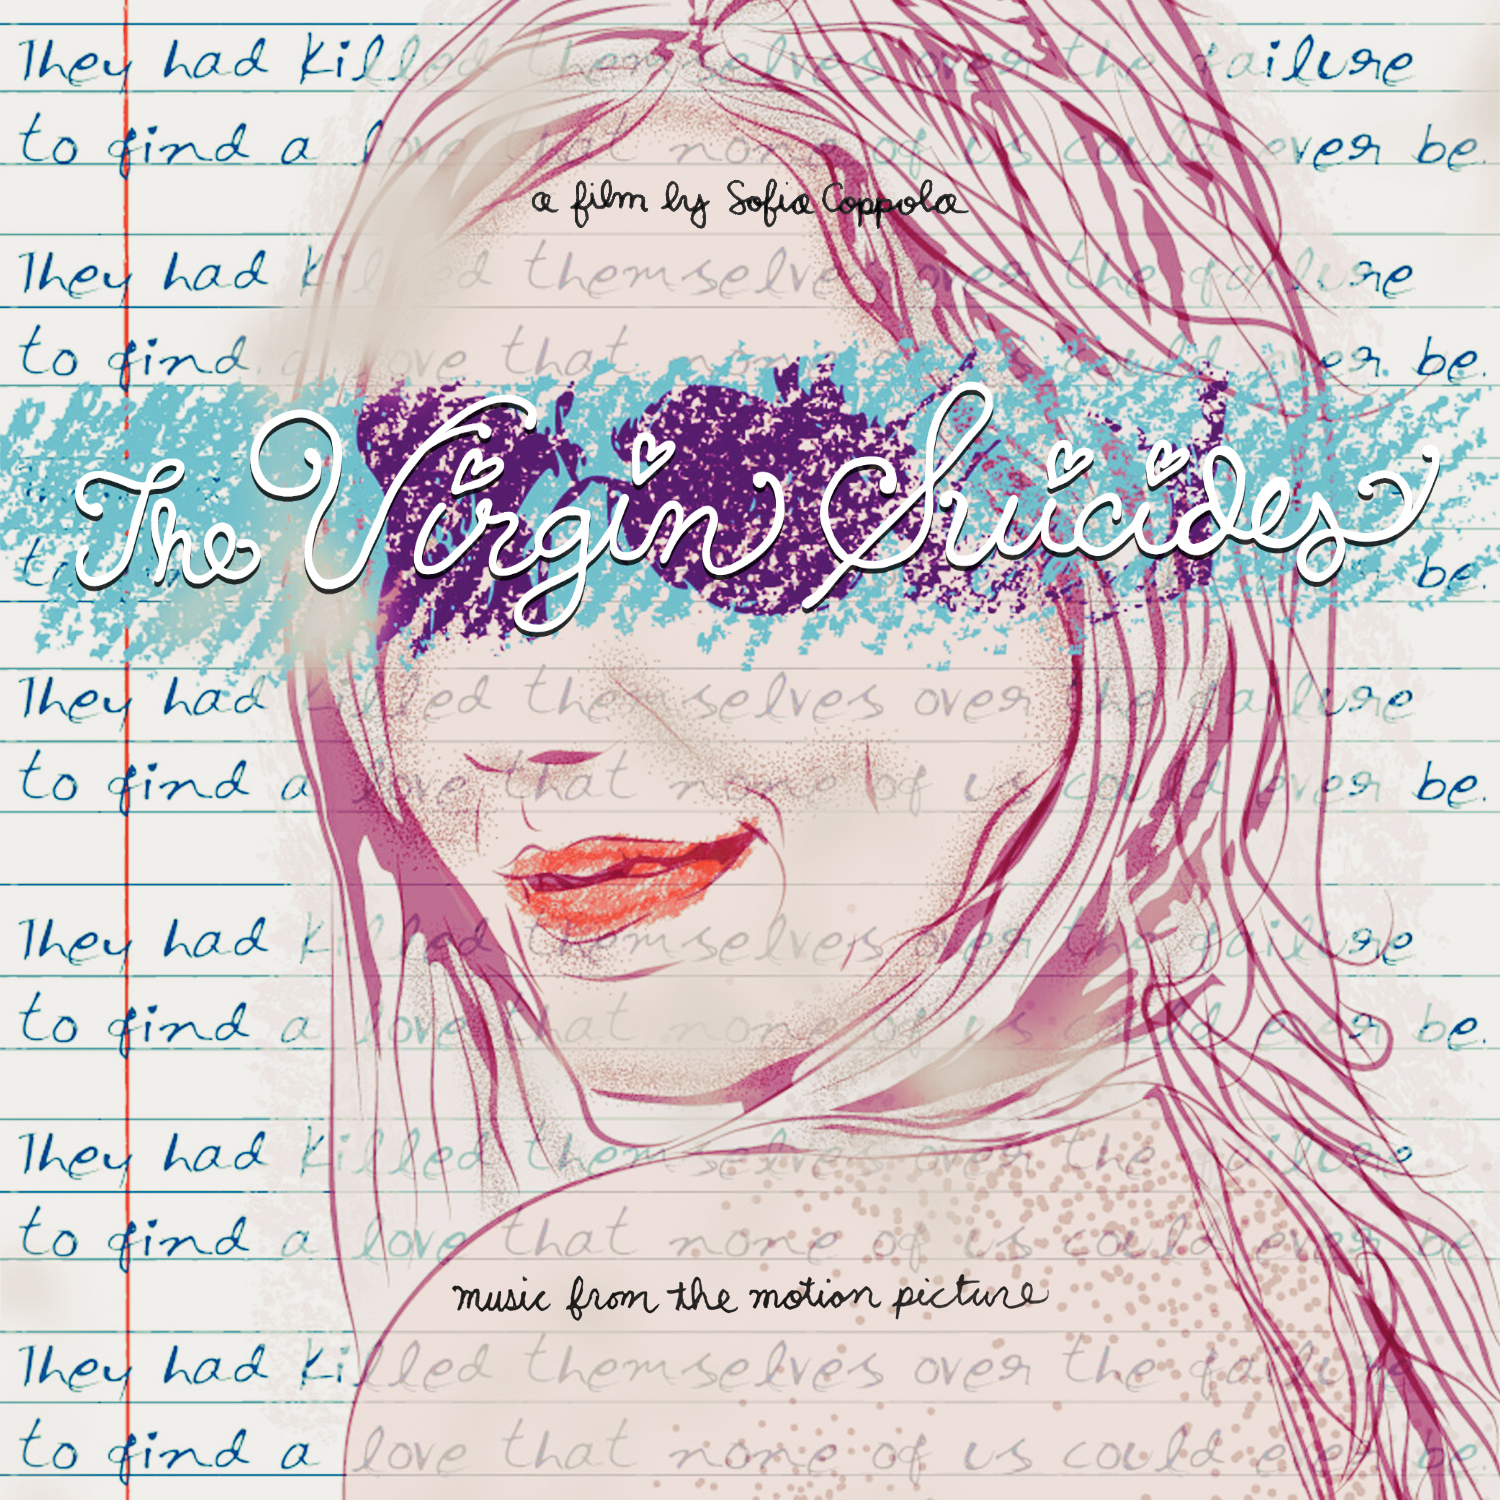 They had killed themselves over the failure
to find a love that none of us could ever be.
a film by Sofia Coppola
They had killed themselves over the failure
to find a love that none of us could over be.
The Virgin Suicides
to be.
They had killed themselves over the failure
to find a love that none of us could ever be.
They had killed themselves over the failure
to find a love that none of us could ever be.
They had killed themselves over the failure
to find a love that none of us could ever be.
music from the motion picture
They had killed themselves over the failure
to find a love that none of us could ever be.